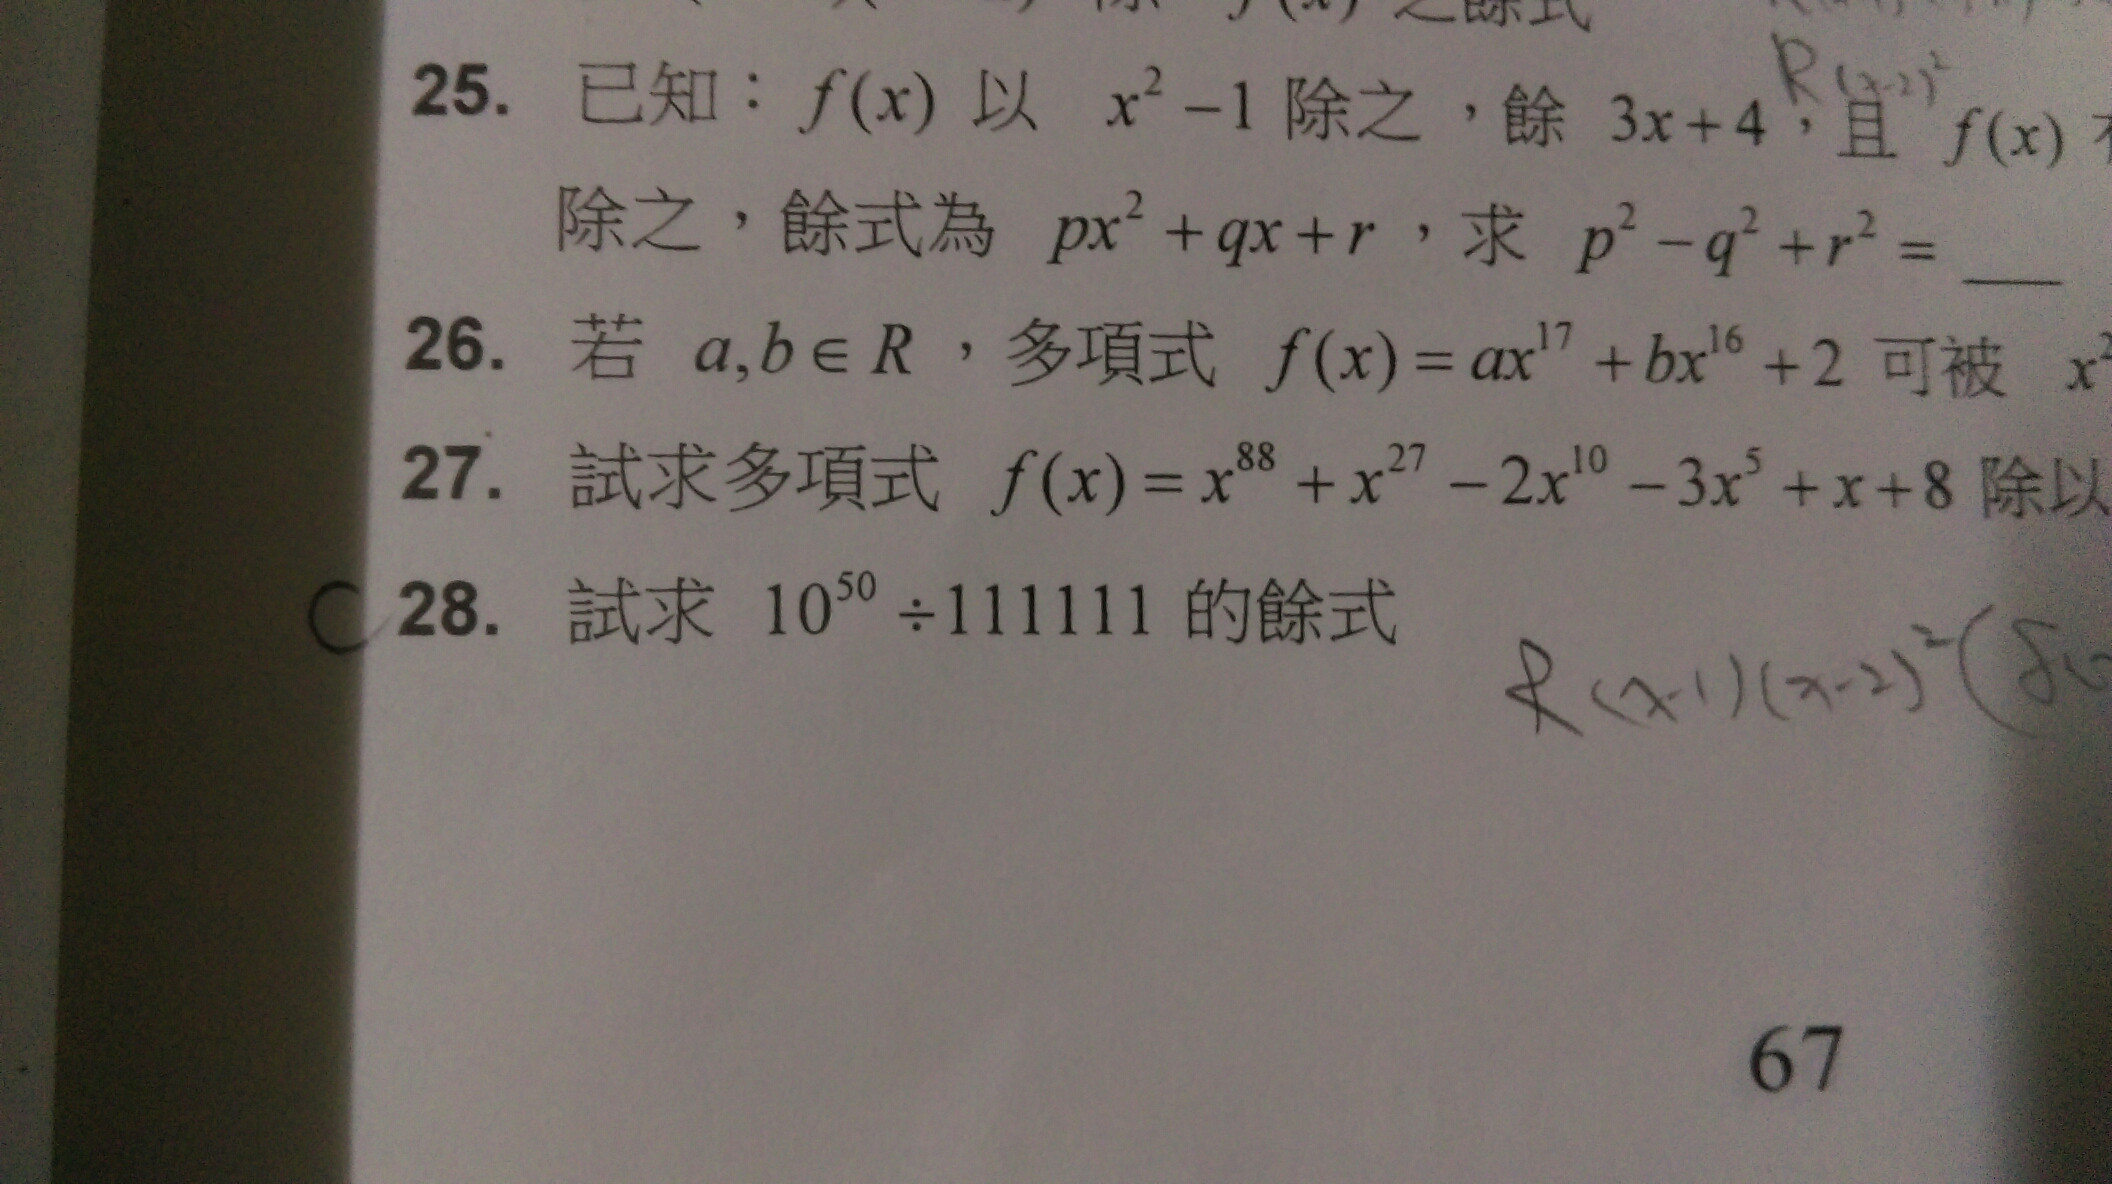 f(x) 之餘式
25. 已知：f(x) 以 x² −1 除之，餘 3x+4，且 f(x)
R (x-2)²
除之，餘式為 px² + qx + r，求 p² − q² + r² = ___
26. 若 a,b ∈ R，多項式 f(x) = ax¹⁷ + bx¹⁶ + 2 可被 x²
27. 試求多項式 f(x) = x⁸⁸ + x²⁷ − 2x¹⁰ − 3x⁵ + x + 8 除以
28. 試求 10⁵⁰ ÷ 111111 的餘式
R (x-1)(x-2)² (
67